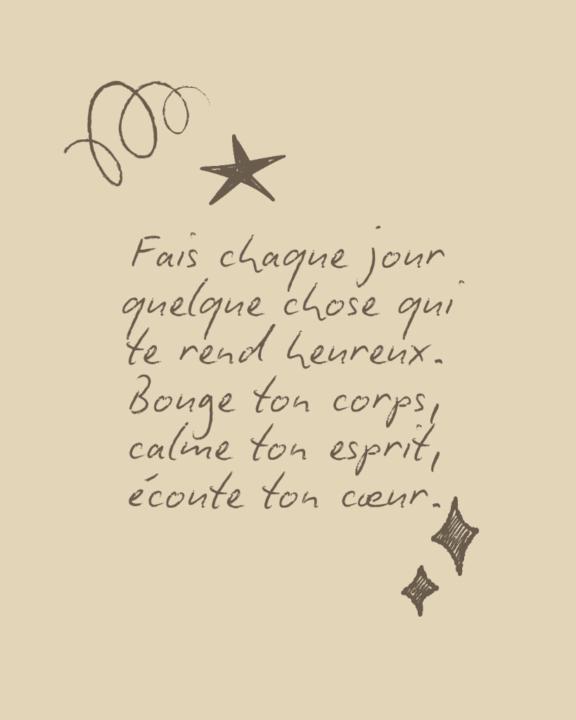 Fais chaque jour
quelque chose qui
te rend heureux.
Bouge ton corps,
calme ton esprit,
écoute ton cœur.